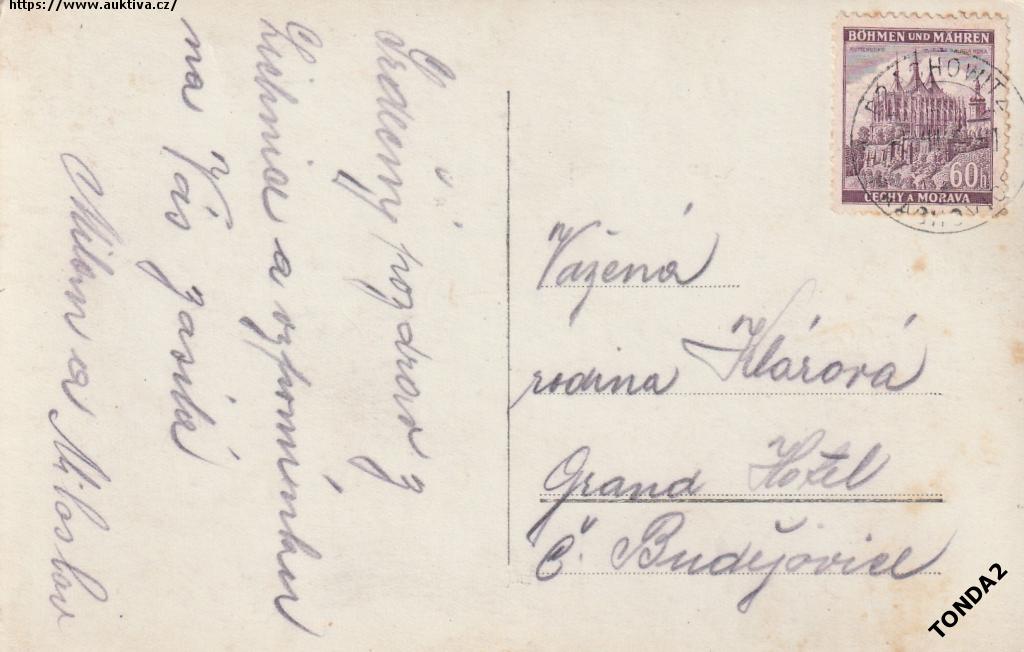 https://www.auktiva.cz/
Srdečný pozdrav z
Lichnic a vzpomínku
na Vás zasílá
Milan a Miloslav
BÖHMEN UND MÄHREN
60h
ČECHY A MORAVA
Vážená
rodina Klárová
Grand Hotel
Č. Budějovice
TONDA2